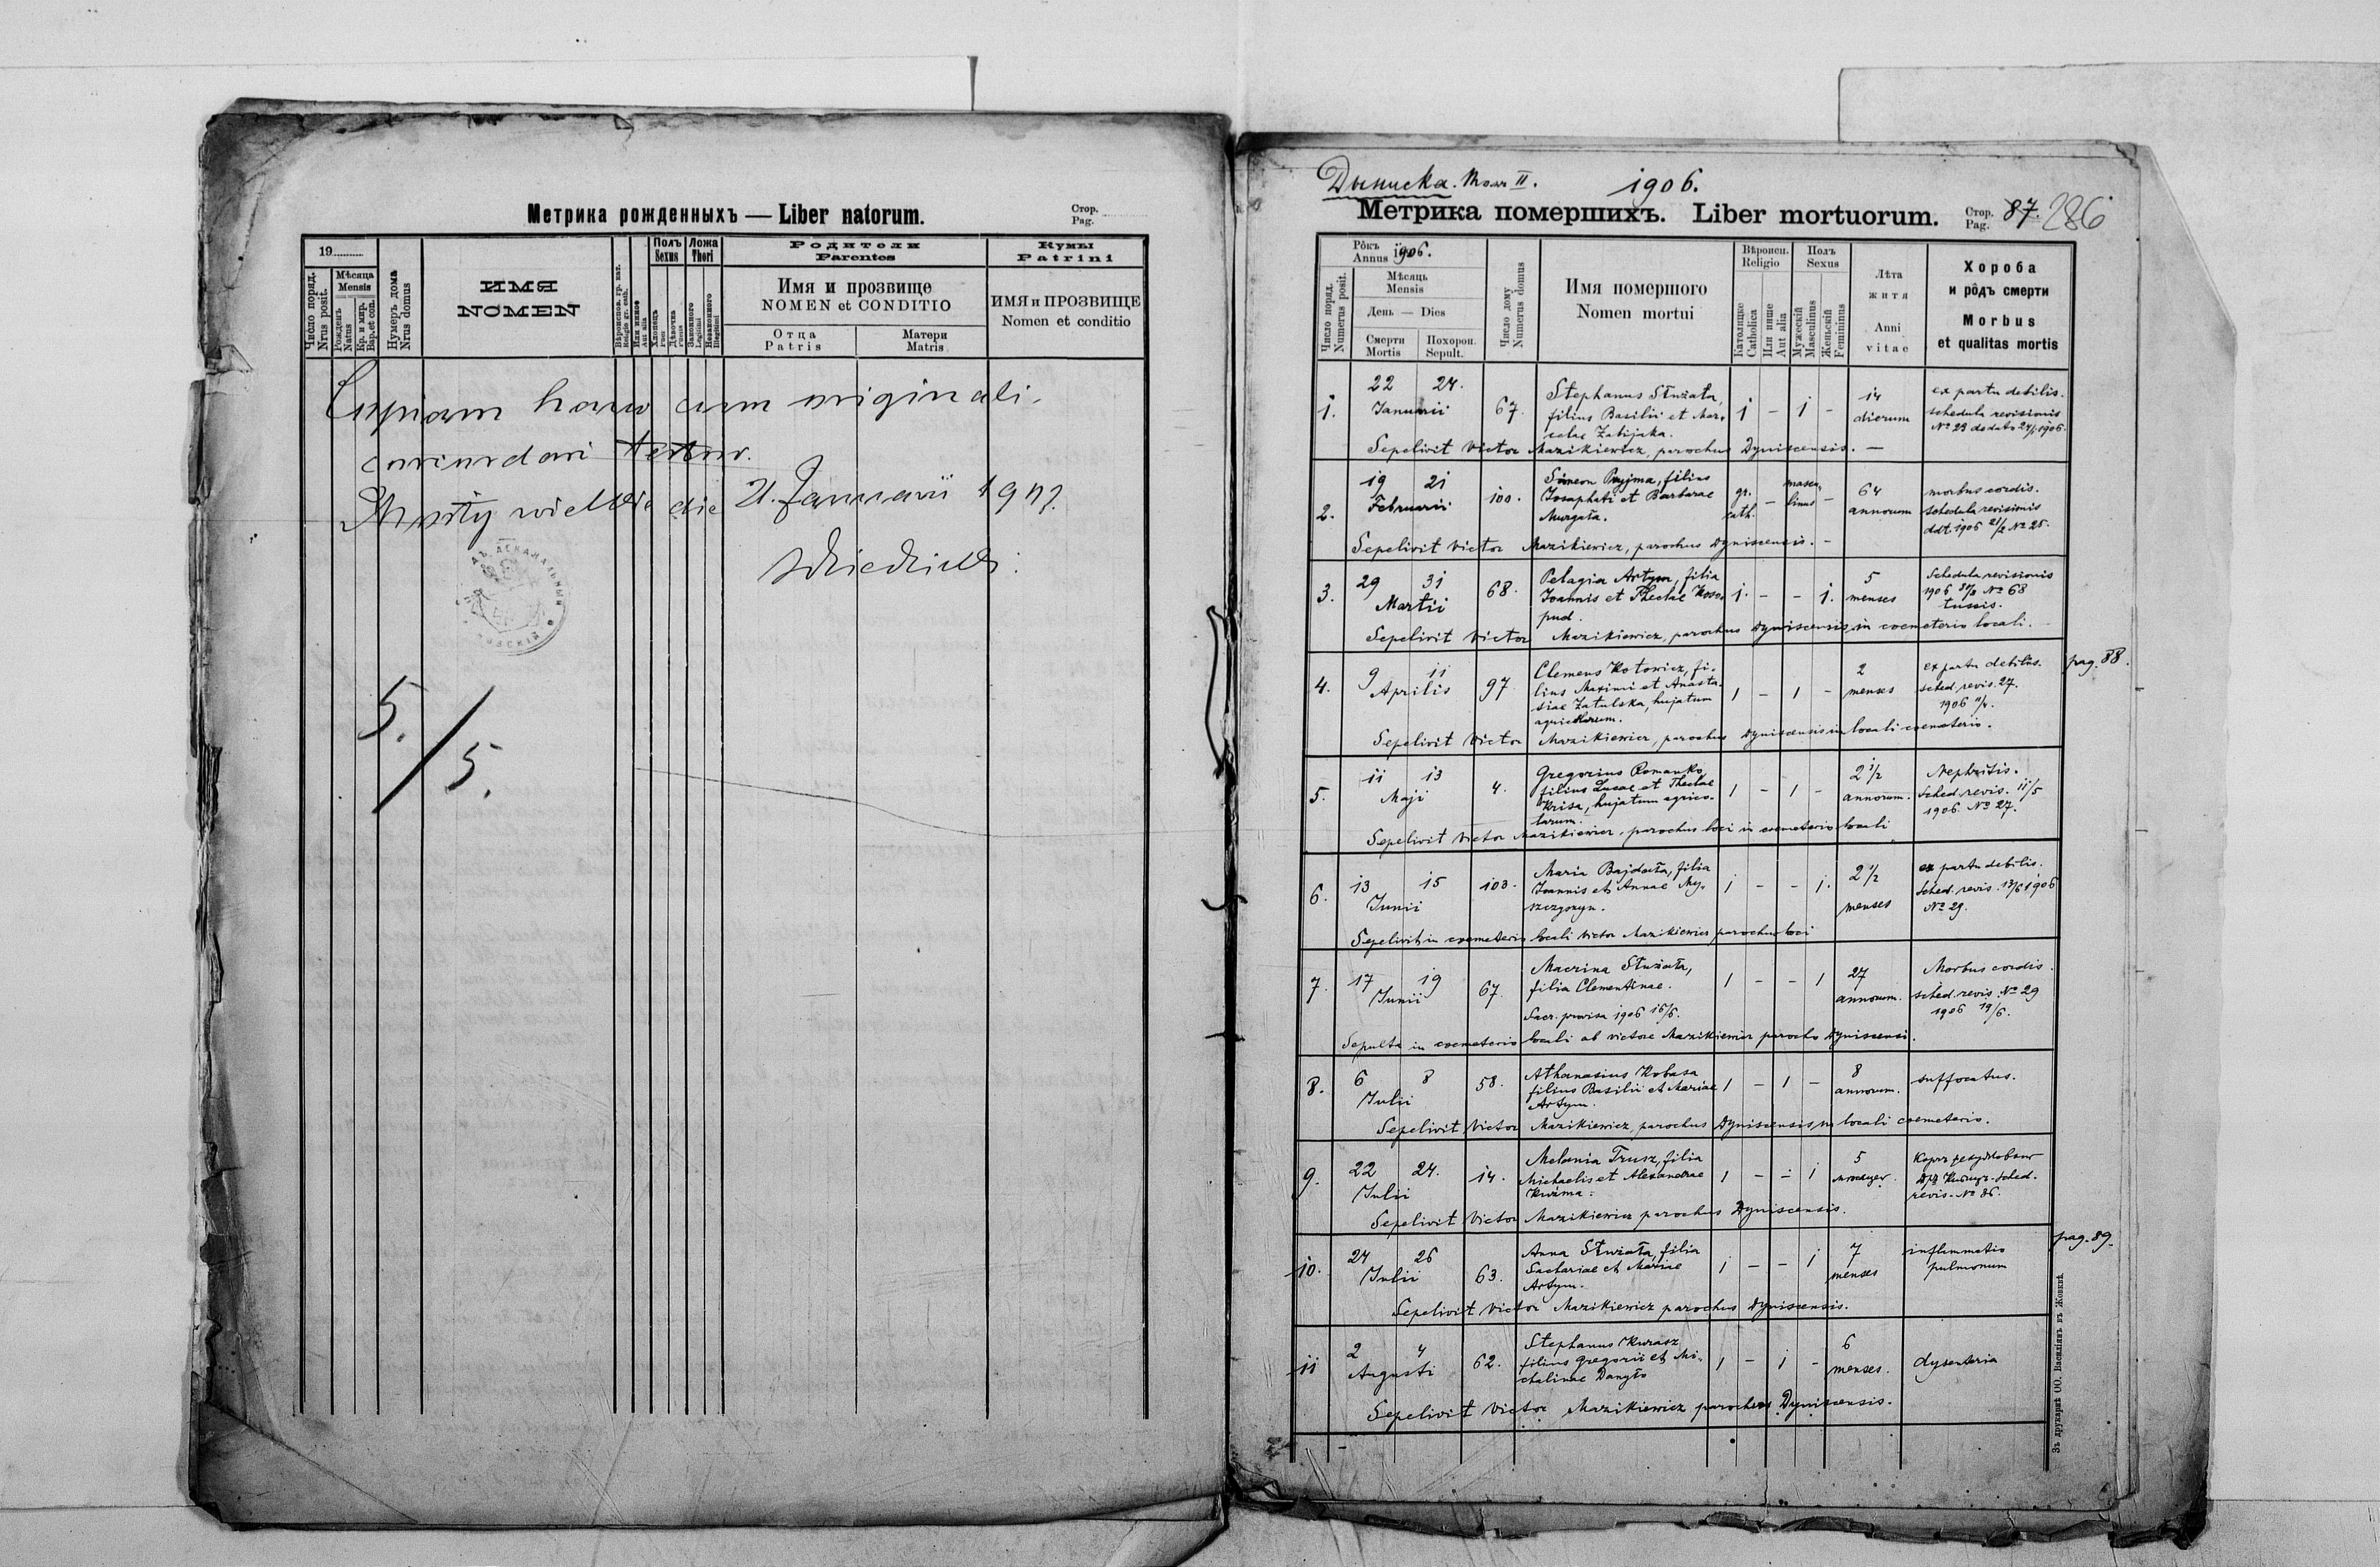 Метрика рожденныхъ — Liber natorum.
Стор.
Pag.
19
Число поряд.
Nrus posit.
Мѣсяца
Mensis
Рожденъ
Natus
Кр. и мир.
Bap. et con.
Нумеръ дома
Nrus domus
ИМЯ
NOMEN
Вѣроиспов. гр. кат.
Religio gr. cath.
Или иное
Aut alia
Полъ
Sexus
Хлопець
Puer
Дѣвочка
Puella
Ложа
Thori
Законного
Legitimi
Незаконного
Illegitimi
Родители
Parentes
Имя и прозвище
NOMEN et CONDITIO
Отца
Patris
Матери
Matris
Кумы
Patrini
ИМЯ и ПРОЗВИЩЕ
Nomen et conditio
Copiam hanc cum originali
concordari testor.
die 21. Januarii 1907.
5./5.
Дыниска. Томъ II. 1906.
Метрика помершихъ. Liber mortuorum.
Стор.
Pag.
87. 286
Рôкъ
Annus 1906.
Число поряд.
Numerus posit.
Мѣсяць
Mensis
День — Dies
Смерти
Mortis
Похорон.
Sepult.
Число дому
Numerus domus
Имя помершого
Nomen mortui
Вѣроисп.
Religio
Католицке
Catholica
Или инше
Aut alia
Полъ
Sexus
Мужескій
Masculinus
Женьскій
Femininus
Лѣта
житя
Anni
vitae
Хороба
и рôдъ смерти
Morbus
et qualitas mortis
1. 22 24. Januarii 67. Stephanus Służała, 1 - 1 - 14 dierum ex partu debilis.
filius Basilii et Mar- schedula revisionis
celae Zabijaka. № 23 de dato 24/1 1906.
Sepelivit Victor Mazikiewicz, parochus Dyniscensis. —
2. 19 21 Februarii 100. Simeon Pryjma, filius gr. cath. - masculinus - 64 annorum morbus cordis.
Josaphati et Barbarae schedula revisionis
Murgała. ddt. 1906 21/2 № 25.
Sepelivit Victor Mazikiewicz, parochus Dyniscensis. -
3. 29 31 Martii 68. Pelagia Artym, filia 1. - - 1. 5 menses Schedula revisionis
Joannis et Theclae Koso- 1906 № 68
pud. tussis.
Sepelivit Victor Mazikiewicz, parochus Dyniscensis, in coemeterio locali.
4. 9 11 Aprilis 97 Clemens Kotowicz, fi- 1 - 1 - 2 menses ex partu debilis. pag. 88.
lius Maximi et Anasta- sched. revis. 27.
siae Zatulska, hujatum 1906 11/4.
agricolarum.
Sepelivit Victor Mazikiewicz, parochus Dyniscensis in locali coemeterio.
5. 11 13 Maji 4. Gregorius Romanko, 1 - 1 - 2 1/2 annorum. Nephritis.
filius Lucae et Theclae Sched. revis. 11/5
Krisa, hujatum agrico- 1906 № 27.
larum.
Sepelivit Victor Mazikiewicz, parochus loci in coemeterio locali
6. 13 15 Junii 103. Maria Bajdała, filia 1 - - 1. 2 1/2 menses ex partu debilis.
Joannis et Annae My- Sched. revis. 13/6 1906
szczyszyn. № 29.
Sepelivit in coemeterio locali Victor Mazikiewicz parochus loci
7. 17 19 Junii 67. Macrina Służała, 1 - - 1 27 annorum. Morbus cordis.
filia Clementinae. sched. revis. № 29
Sacr. provisa 1906 16/6. 1906 19/6.
Sepulta in coemeterio locali ab Victore Mazikiewicz parocho Dyniscensi.
8. 6 8 Julii 58. Athanasius Kobasa 1 - 1 - 8 annorum. suffocatus.
filius Basilii et Mariae
Artym.
Sepelivit Victor Mazikiewicz, parochus Dyniscensis in locali coemeterio.
9. 22 24. Julii 14. Melania Trusz, filia 1 - - 1 5
Michaelis et Alexandrae sched.
Kuzma. revis. № 36.
Sepelivit Victor Mazikiewicz parochus Dyniscensis.
10. 24 26 Julii 63. Anna Służała, filia 1 - - 1 7 menses inflammatio pag. 89.
Zachariae et Mariae pulmonum
Artym.
Sepelivit Victor Mazikiewicz parochus Dyniscensis.
11 2 4 Augusti 62. Stephanus Kurasz 1 - 1 - 6 menses. dysenteria
filius Gregorii et Mi-
chalinae Danyło
Sepelivit Victor Mazikiewicz parochus Dyniscensis.
Зъ друкарнѣ ОО. Василіянъ въ Жовквѣ.